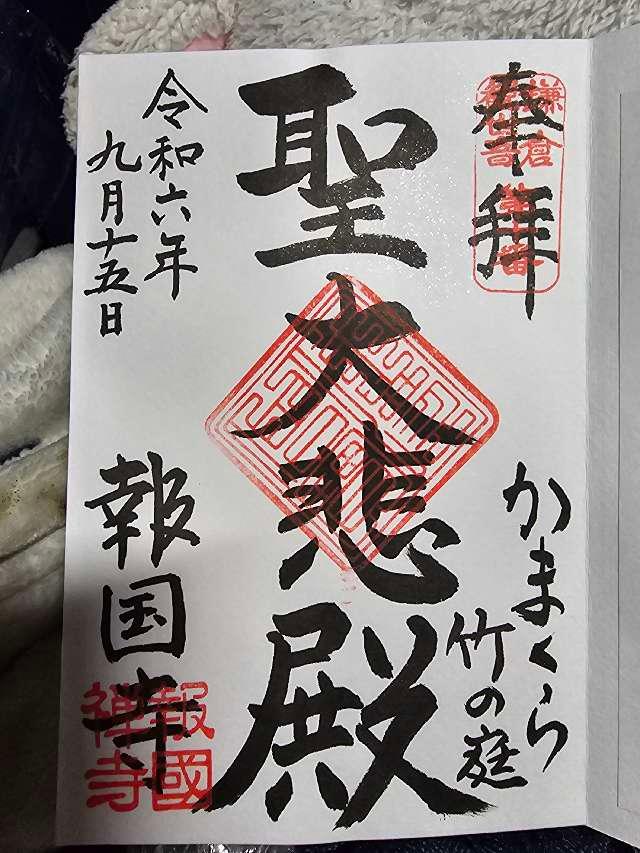 奉拝
鎌倉
第十番
聖大悲殿
かまくら
竹の庭
令和六年
九月十五日
報国寺
報國
禅寺